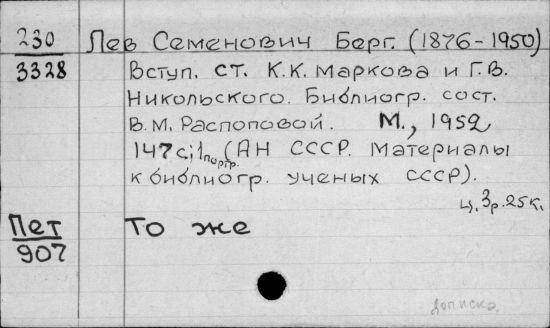 230 Лев Семенович Берг. (1876-1950)
3328 Вступ. ст. К.К. Маркова и Г.В.
Никольского. Библиогр. сост.
В.М. Распоповой. М., 1952
147 с; 1 портр. (АН СССР. Материалы
к библиогр. ученых СССР).
ц. 3р. 25к.
Пет То же
907
дописка